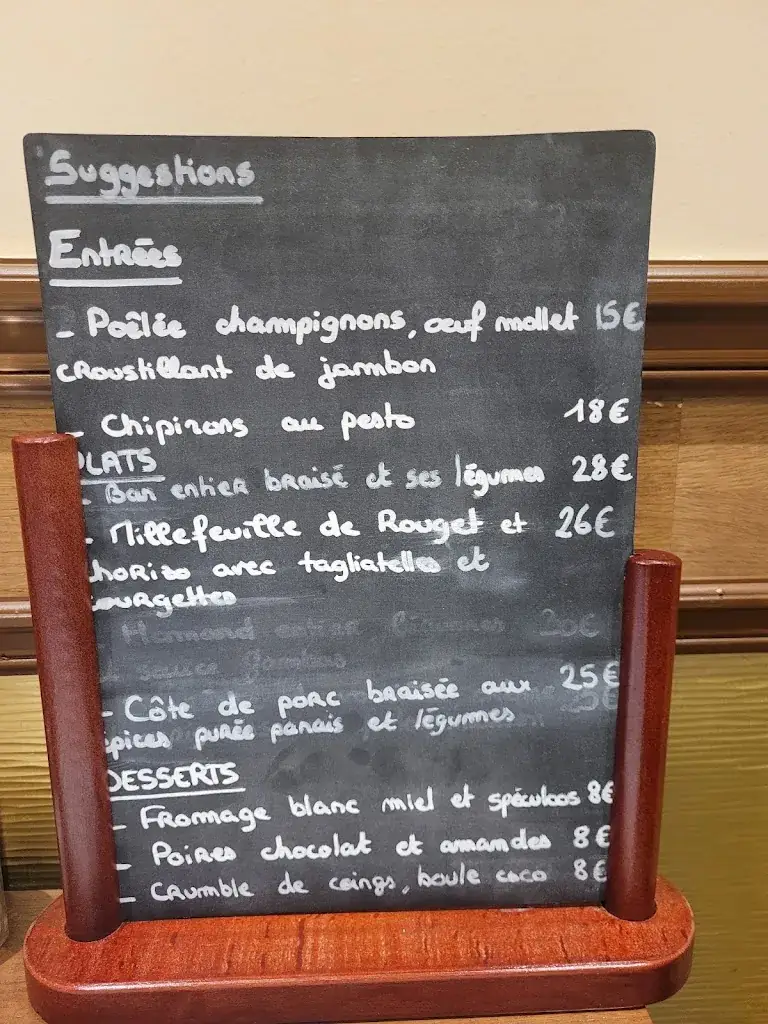 Suggestions
Entrées
- Poêlée champignons, œuf mollet 15€
croustillant de jambon
- Chipirons au pesto 18€
PLATS
- Bar entier braisé et ses légumes 28€
- Millefeuille de Rouget et 26€
chorizo avec tagliatelles et
courgettes
entier légumes
sauce
- Côte de porc braisée aux 25€
épices purée panais et légumes
DESSERTS
- Fromage blanc miel et spéculoos 8€
- Poires chocolat et amandes 8€
- Crumble de coings, boule coco 8€